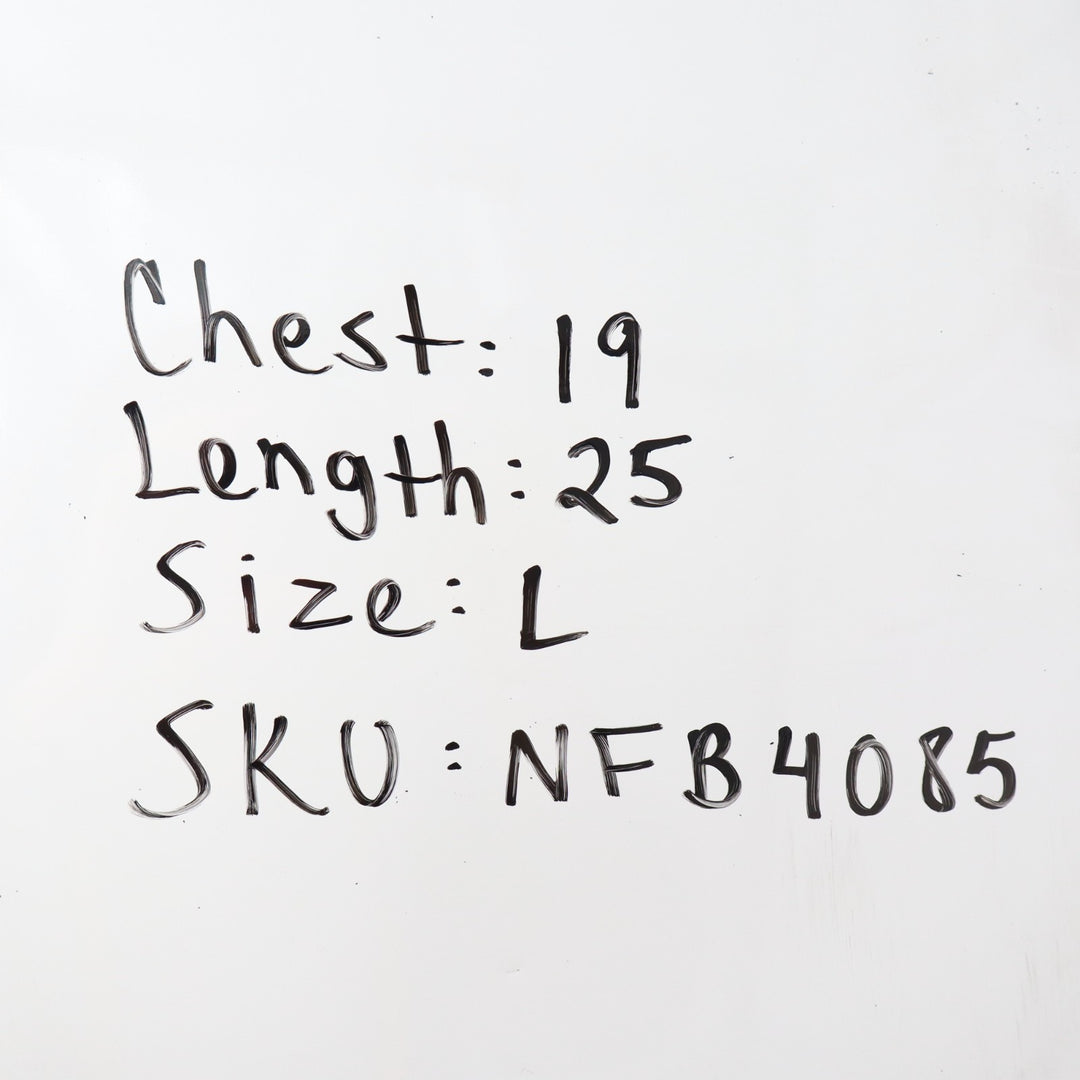 Chest: 19
Length: 25
Size: L
SKU: NFB4085